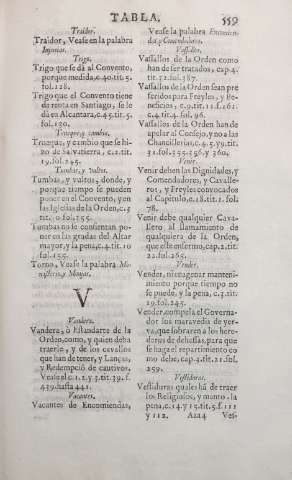 TABLA. 559
Traidor.
Traidor, Vease en la palabra
Injurias.
Trigo.
Trigo que se dà al Convento,
porque medida, c.40. tit.5.
fol.128.
Trigo que el Convento tiene
de renta en Santiago, se le
dà en Alcantara, c.45. tit.5.
fol.120.
Trueques, y cambios.
Truequs, y cambio que se hi-
zo de Salvatierra, c.1. tit.
19. fol.245.
Tumbas, y vultos.
Tumbas, y vultos, donde, y
porque tiempo se pueden
poner en el Convento, y en
las Iglesias de la Orden, c.5
tit. 10. fol.155.
Tumbas no se consientan po-
ner en las gradas del Altar
mayor, y la pena, c.4. tit. 10
fol.155.
Torno, Vease la palabra Mo-
nasterios, y Monjas.
V
Vandera.
Vandera, ò Estandarte de la
Orden, como, y quien deba
traerle, y de los cavallos
que han de tener, y Lanças,
y Redempciõ de cautivos.
Veasse el c.1.2. y 3. tit.39. f.
439. hasta 441.
Vacantes.
Vacantes de Encomiendas,
Vease la palabra Encomien-
da, y Comendadores.
Vassallos.
Vassallos de la Orden como
han de ser tratados, cap.4.
tit.31. fol.387.
Vassallos de la Orden sean pre
feridos para Freyles, y Be-
neficios, c.9. tit.11. f.161.
c.4. tit.4. fol. 96.
Vassallos de la Orden han de
apelar al Consejo, y no a las
Chancillerias, c.4. 5. y 9. tit.
31. fol.355. 356. y 360.
Venir.
Venir deben las Dignidades, y
Comendadores, y Cavalle-
ros, y Freyles convocados
al Capitulo, c.18. tit.1. fol.
78.
Venir debe qualquier Cava-
llero al llamamiento de
qualquiera de la Orden,
que estè enfermo, cap.2. tit.
22. fol.265.
Vender.
Vender, ni enagenar manteni-
miento porque tiempo no
se puede, y la pena, c.3. tit.
19. fol.245.
Vender, compela el Governa-
dor los maravedis de yer-
va, que sobraren a los here-
deros de dehessas, para que
se haga el repartimiento co
mo debe, cap.4. tit.21. fol.
259.
Vestiduras.
Vestiduras quales hã de traer
los Religiosos, y manto, la
pena, c.14. y 15. tit.5. f.111
y 112. Aaa4 Ves-